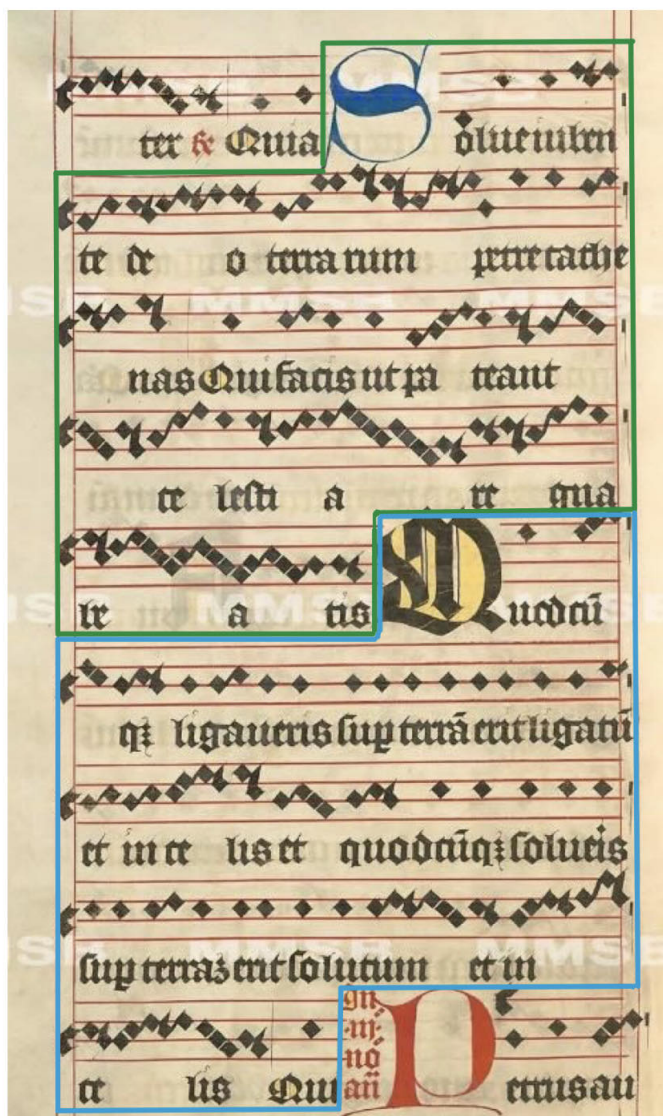 ter R Quia Solue iuben
te de o terrarum petre cathe
nas Qui facis ut pa teant
ce lesti a re gna
be a tis Quodcū
qꝫ ligaueris suꝑ terrā erit ligatū
et in ce lis et quodcūqꝫ solueis
suꝑ terraꝫ erit solutum et in
ce lis Qui Petrus au